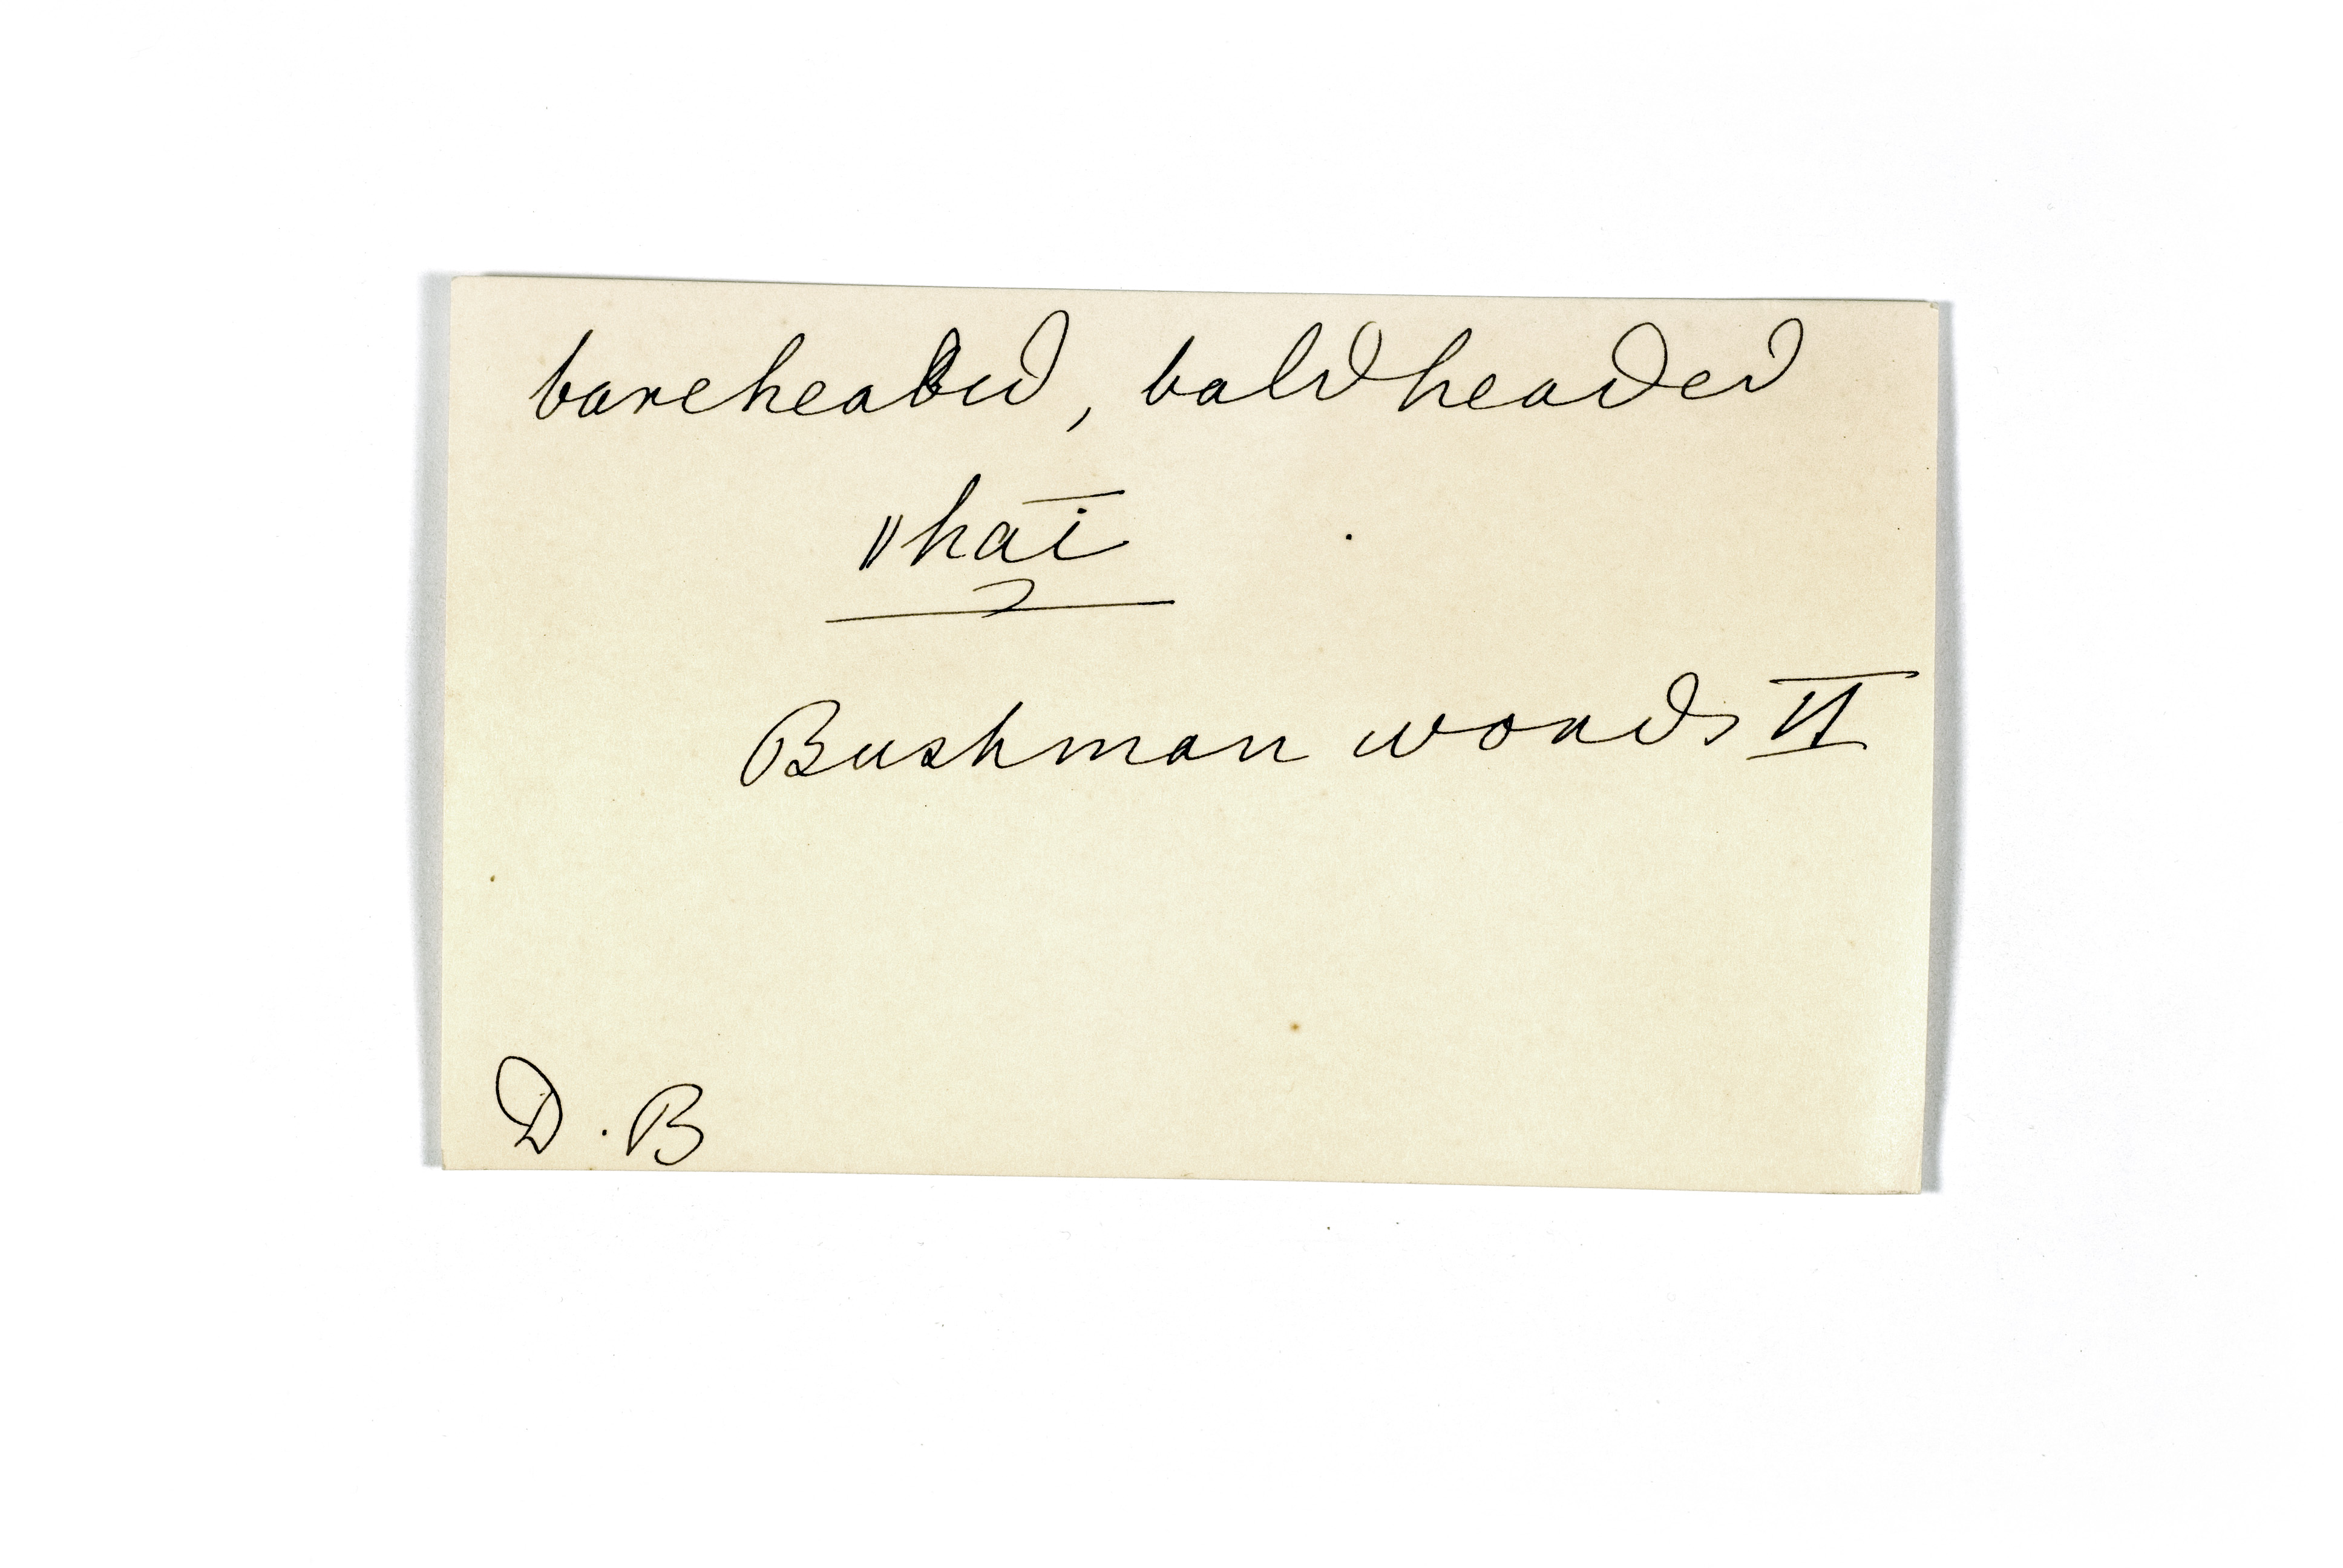 bareheaded, baldheaded
ǁhāī
Bushman words II
D.B